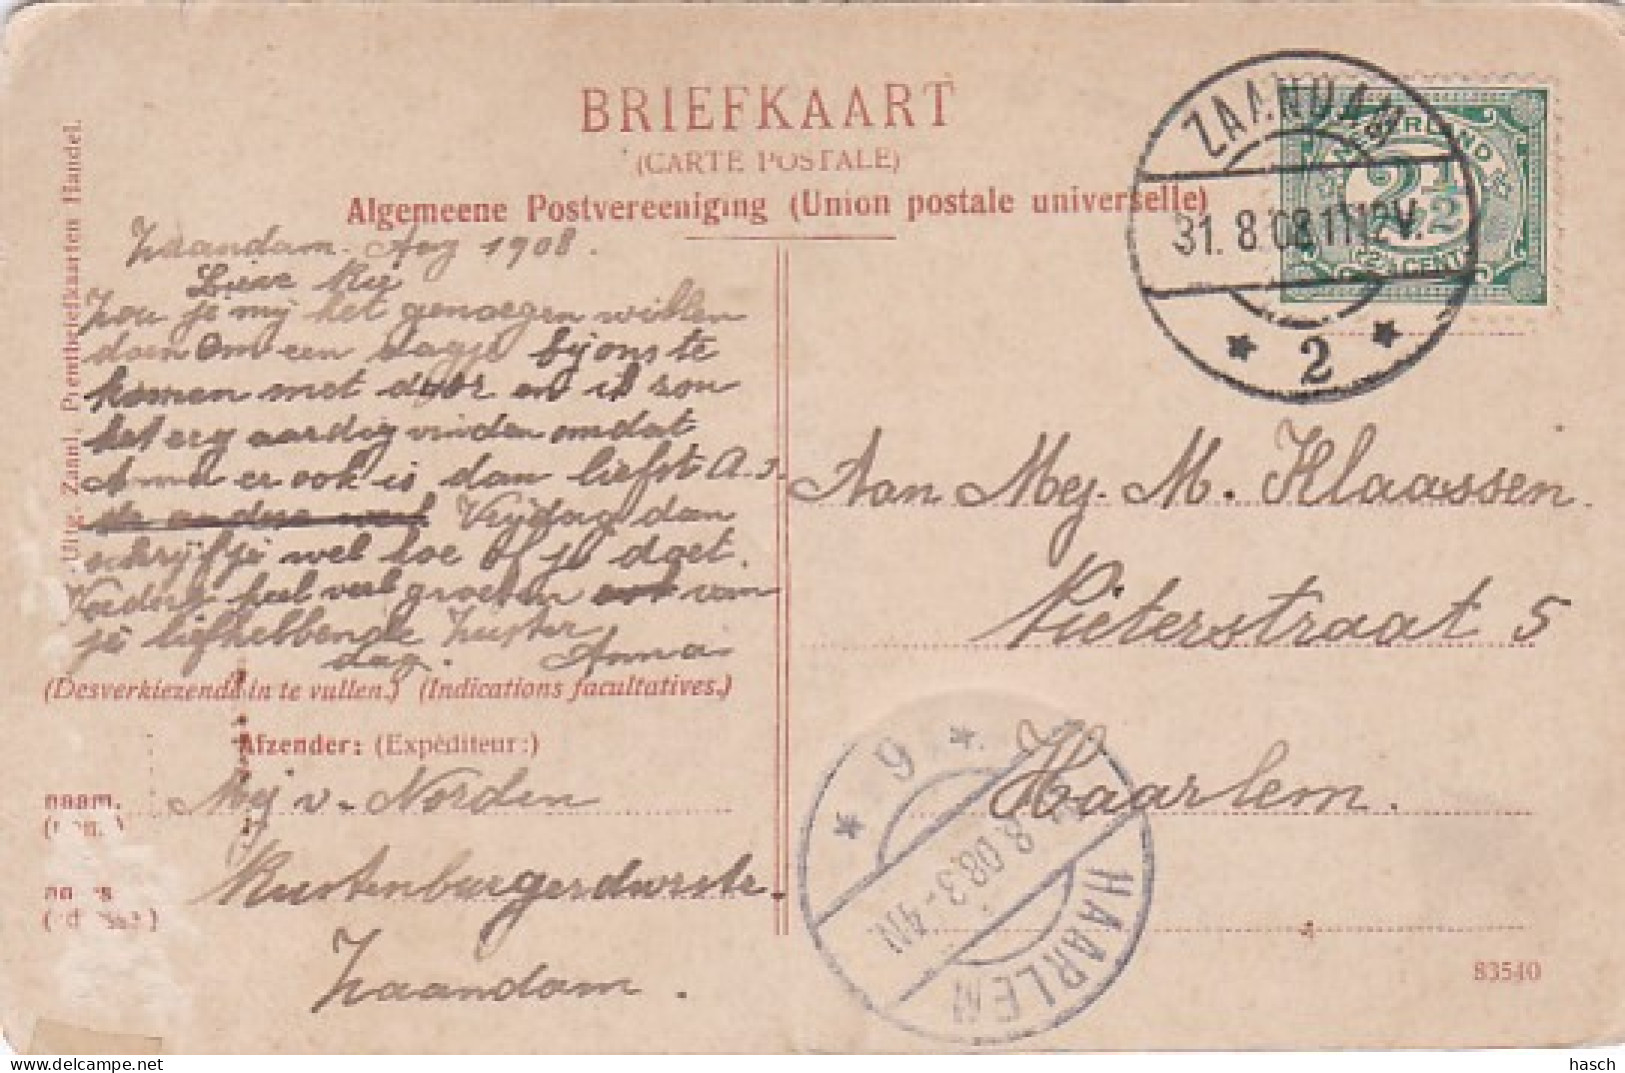 BRIEFKAART
(CARTE POSTALE)
Algemeene Postvereeniging (Union postale universelle)
Uitg. Zaanl. Prentbriefkaarten Handel.
ZAANDAM
31.8.08.11-12V.
2
NEDERLAND
2½
(2½CENT)
Zaandam. Aug 1908.
Lieve Rie
Zou je mij het genoegen willen
doen om een dagje bij ons te
komen met door en ik zou
het erg aardig vinden omdat
Anna er ook is dan liefst A.s.
Vrijdag dan
schrijf je wel toe of je doet.
Verders heel veel groeten van
je liefhebbende Zuster
dag. Anna
(Desverkiezende in te vullen.) (Indications facultatives.)
Afzender: (Expéditeur:)
naam.
Mej v. Norden
Rustenburgerdwrstr.
Zaandam.
Aan Mej. M. Klaassen.
Pieterstraat 5
Haarlem.
9
8.08.3-4N.
HAARLEM
83540
hasch